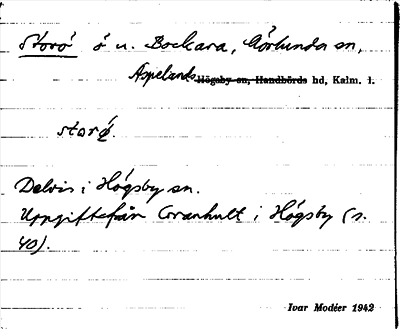 Storö ö u. Bockara, Mörlunda sn,
Aspelands Högsby sn, Handbörds hd, Kalm. l.
storö.
Delvis i Högsby sn.
Uppgift från Granhult i Högsby (s.
40).
Ivar Modéer 1942